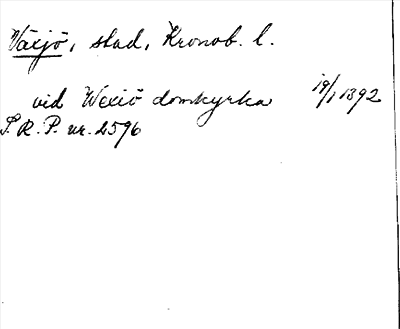 Växjö, stad, Kronob. l.
vid Wexiö domkyrka 19/1 1392
S.R.P. nr. 2596